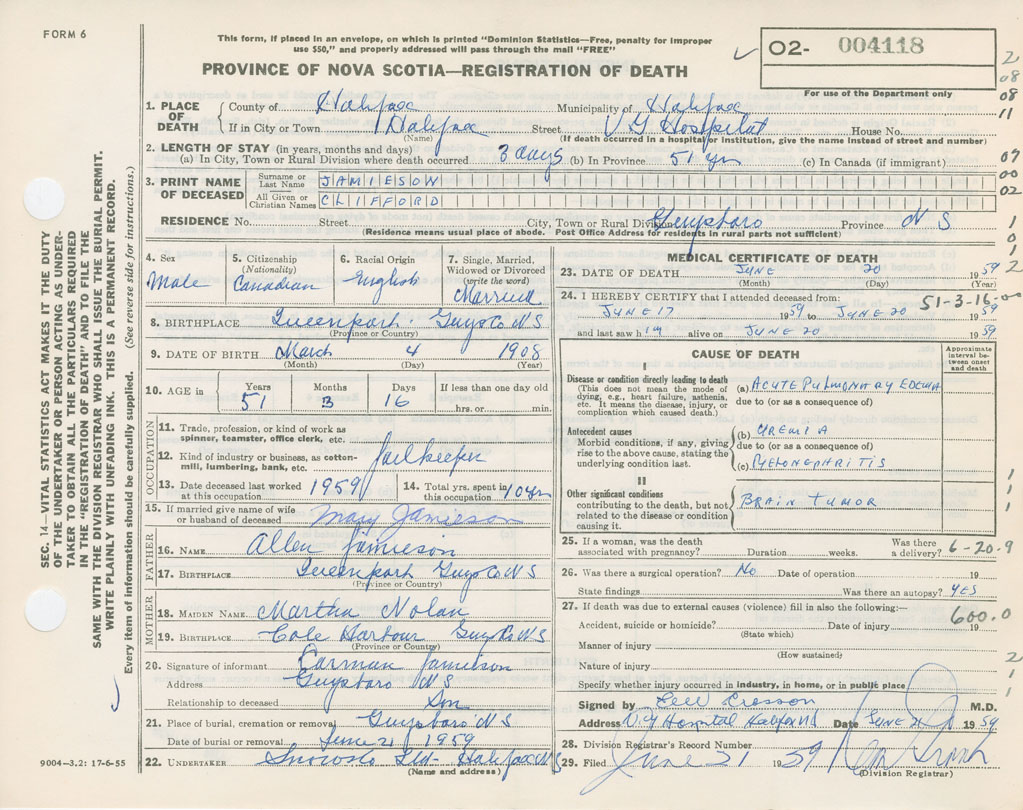 FORM 6
This form, if placed in an envelope, on which is printed "Dominion Statistics—Free, penalty for improper
use $50," and properly addressed will pass through the mail "FREE"
PROVINCE OF NOVA SCOTIA—REGISTRATION OF DEATH
02- 004118
For use of the Department only
SEC. 14—VITAL STATISTICS ACT MAKES IT THE DUTY
OF THE UNDERTAKER OR PERSON ACTING AS UNDER-
TAKER TO OBTAIN ALL THE PARTICULARS REQUIRED
IN THE "REGISTRATION OF DEATH" AND TO FILE THE
SAME WITH THE DIVISION REGISTRAR WHO SHALL ISSUE THE BURIAL PERMIT.
WRITE PLAINLY WITH UNFADING INK. THIS IS A PERMANENT RECORD.
Every item of information should be carefully supplied. (See reverse side for instructions.)
1. PLACE OF DEATH
County of Halifax Municipality of Halifax
If in City or Town Halifax Street V G Hospital House No.
(Name) (If death occurred in a hospital or institution, give the name instead of street and number)
2. LENGTH OF STAY (in years, months and days)
(a) In City, Town or Rural Division where death occurred 3 days (b) In Province 51 yr (c) In Canada (if immigrant)
3. PRINT NAME OF DECEASED
Surname or Last Name JAMIESON
All Given or Christian Names CLIFFORD
RESIDENCE No. Street City, Town or Rural Division Guysboro Province N S
(Residence means usual place of abode. Post Office Address for residents in rural parts not sufficient)
4. Sex Male
5. Citizenship (Nationality) Canadian
6. Racial Origin English
7. Single, Married, Widowed or Divorced (write the word) Married
8. BIRTHPLACE Queenport Guys Co N S
(Province or Country)
9. DATE OF BIRTH March 4 1908
(Month) (Day) (Year)
10. AGE in Years 51 Months 3 Days 16 If less than one day old hrs. or min.
OCCUPATION
11. Trade, profession, or kind of work as spinner, teamster, office clerk, etc.
12. Kind of industry or business, as cotton-mill, lumbering, bank, etc. Jailkeeper
13. Date deceased last worked at this occupation 1959
14. Total yrs. spent in this occupation 10 yr
15. If married give name of wife or husband of deceased Mary Jamieson
FATHER
16. NAME Allen Jamieson
17. BIRTHPLACE Queenport Guys Co N S
(Province or Country)
MOTHER
18. MAIDEN NAME Martha Nolan
19. BIRTHPLACE Cole Harbour Guys Co N S
(Province or Country)
20. Signature of informant Carman Jamieson
Address Guysboro N S
Relationship to deceased Son
21. Place of burial, cremation or removal Guysboro N S
Date of burial or removal June 21 1959
22. UNDERTAKER Snows Ltd Halifax N S
(Name and address)
9004—3.2: 17-6-55
MEDICAL CERTIFICATE OF DEATH
23. DATE OF DEATH JUNE 20 1959
(Month) (Day) (Year)
24. I HEREBY CERTIFY that I attended deceased from: 51-3-16-00
JUNE 17 1959 to JUNE 20 1959
and last saw him alive on JUNE 20 1959
CAUSE OF DEATH
Approximate interval between onset and death
I
Disease or condition directly leading to death
(This does not mean the mode of dying, e.g., heart failure, asthenia, etc. It means the disease, injury, or complication which caused death.)
(a) ACUTE PULMONARY EDEMA
due to (or as a consequence of)
Antecedent causes
Morbid conditions, if any, giving rise to the above cause, stating the underlying condition last.
(b) UREMIA
due to (or as a consequence of)
(c) PYELONEPHRITIS
II
Other significant conditions contributing to the death, but not related to the disease or condition causing it.
BRAIN TUMOR
25. If a woman, was the death associated with pregnancy? Duration weeks. Was there a delivery? 6-20-9
26. Was there a surgical operation? No Date of operation 19
State findings Was there an autopsy? YES
27. If death was due to external causes (violence) fill in also the following:— 600.0
Accident, suicide or homicide? Date of injury 19
(State which)
Manner of injury
(How sustained)
Nature of injury
Specify whether injury occurred in industry, in home, or in public place
Signed by M.D.
Address V G Hospital Halifax NS Date JUNE 21 1959
28. Division Registrar's Record Number
29. Filed June 21 1959
(Division Registrar)
2
08
08
11
07
00
02
1
0
1
2
1
1
1
2
1
1